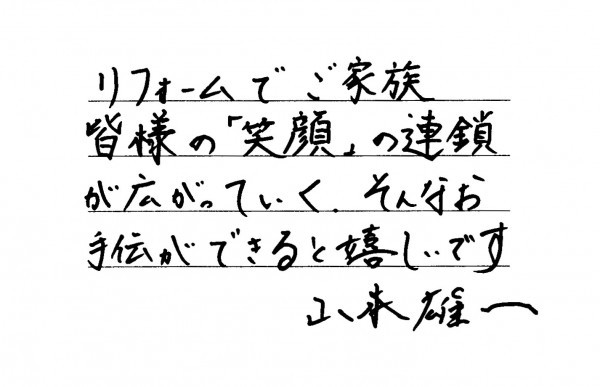 リフォームでご家族
皆様の「笑顔」の連鎖
が広がっていく、そんなお
手伝ができると嬉しいです
山本雄一